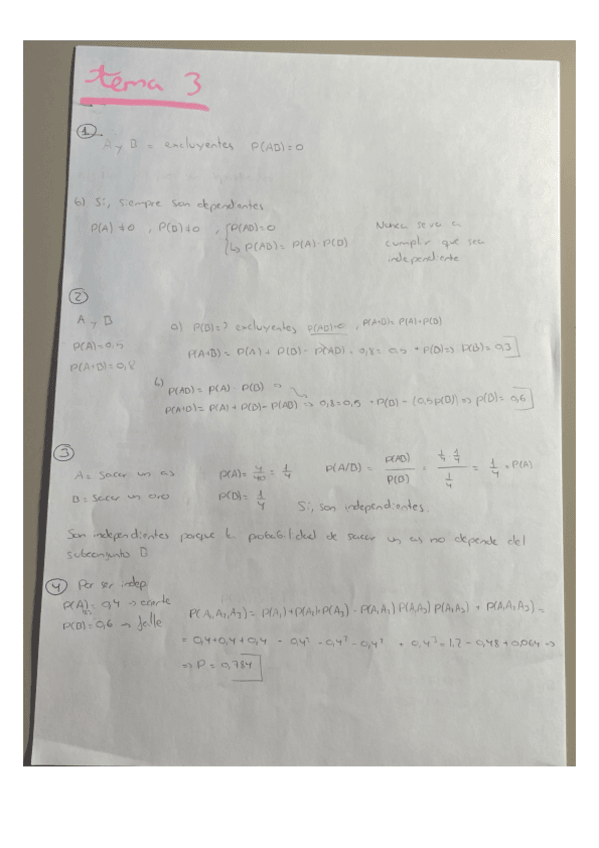 tema 3
①
A y B = excluyentes P(AB)=0
b) Si, siempre son dependientes
P(A)≠0 , P(B)≠0 , { P(AB)=0
↳ P(AB)= P(A)·P(B)
Nunca se va a
cumplir que sea
independiente
②
A y B
P(A)=0,5
P(A+B)=0,8
a) P(B)=? excluyentes P(AB)=0 , P(A+B)= P(A)+P(B)
P(A+B) = P(A) + P(B) - P(AB) = 0,8 = 0,5 + P(B) => P(B)= 0,3
b)
P(AB) = P(A) · P(B) =>
P(A+B)= P(A) + P(B) - P(AB) => 0,8=0,5 + P(B) - (0,5P(B)) => P(B)= 0,6
③
A = sacar un as P(A)= 4/40 = 1/4 P(A/B) = P(AB)/P(B) = (1/4 · 1/4)/(1/4) = 1/4 = P(A)
B = sacar un oro P(B)= 1/4 Si, son independientes.
Son independientes porque la probabilidad de sacar un as no depende del
subconjunto B
④ Por ser indep
P(A)= 0,4 → acierte
P(B)= 0,6 → falle
P(A₁A₂A₃)= P(A₁)+P(A₂)+P(A₃) - P(A₁A₂) P(A₂A₃) P(A₁A₃) + P(A₁A₂A₃)=
= 0,4+0,4+0,4 - 0,4² - 0,4² - 0,4² + 0,4³ = 1,2 - 0,48 + 0,064 =>
=> P = 0,784